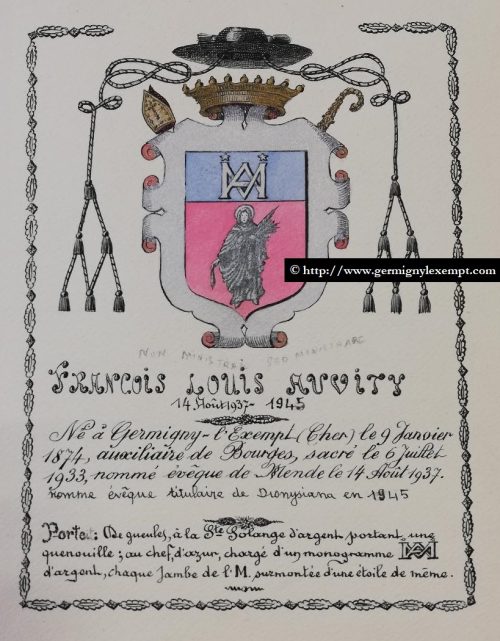 © http://www.germignylexempt.com
NON MINISTRARI SED MINISTRARE
FRANCOIS LOUIS AUVITY
14 Août 1937 - 1945
Né à Germigny-l'Exempt (Cher) le 9 Janvier
1874, auxiliaire de Bourges, sacré le 6 Juillet
1933, nommé évêque de Mende le 14 Août 1937.
nommé évêque titulaire de Dionysiana en 1945
Porte: De gueules, à la Ste Solange d'argent portant une
quenouille; au chef d'azur, chargé d'un monogramme MA
d'argent, chaque Jambe de l'M. surmontée d'une étoile de même.